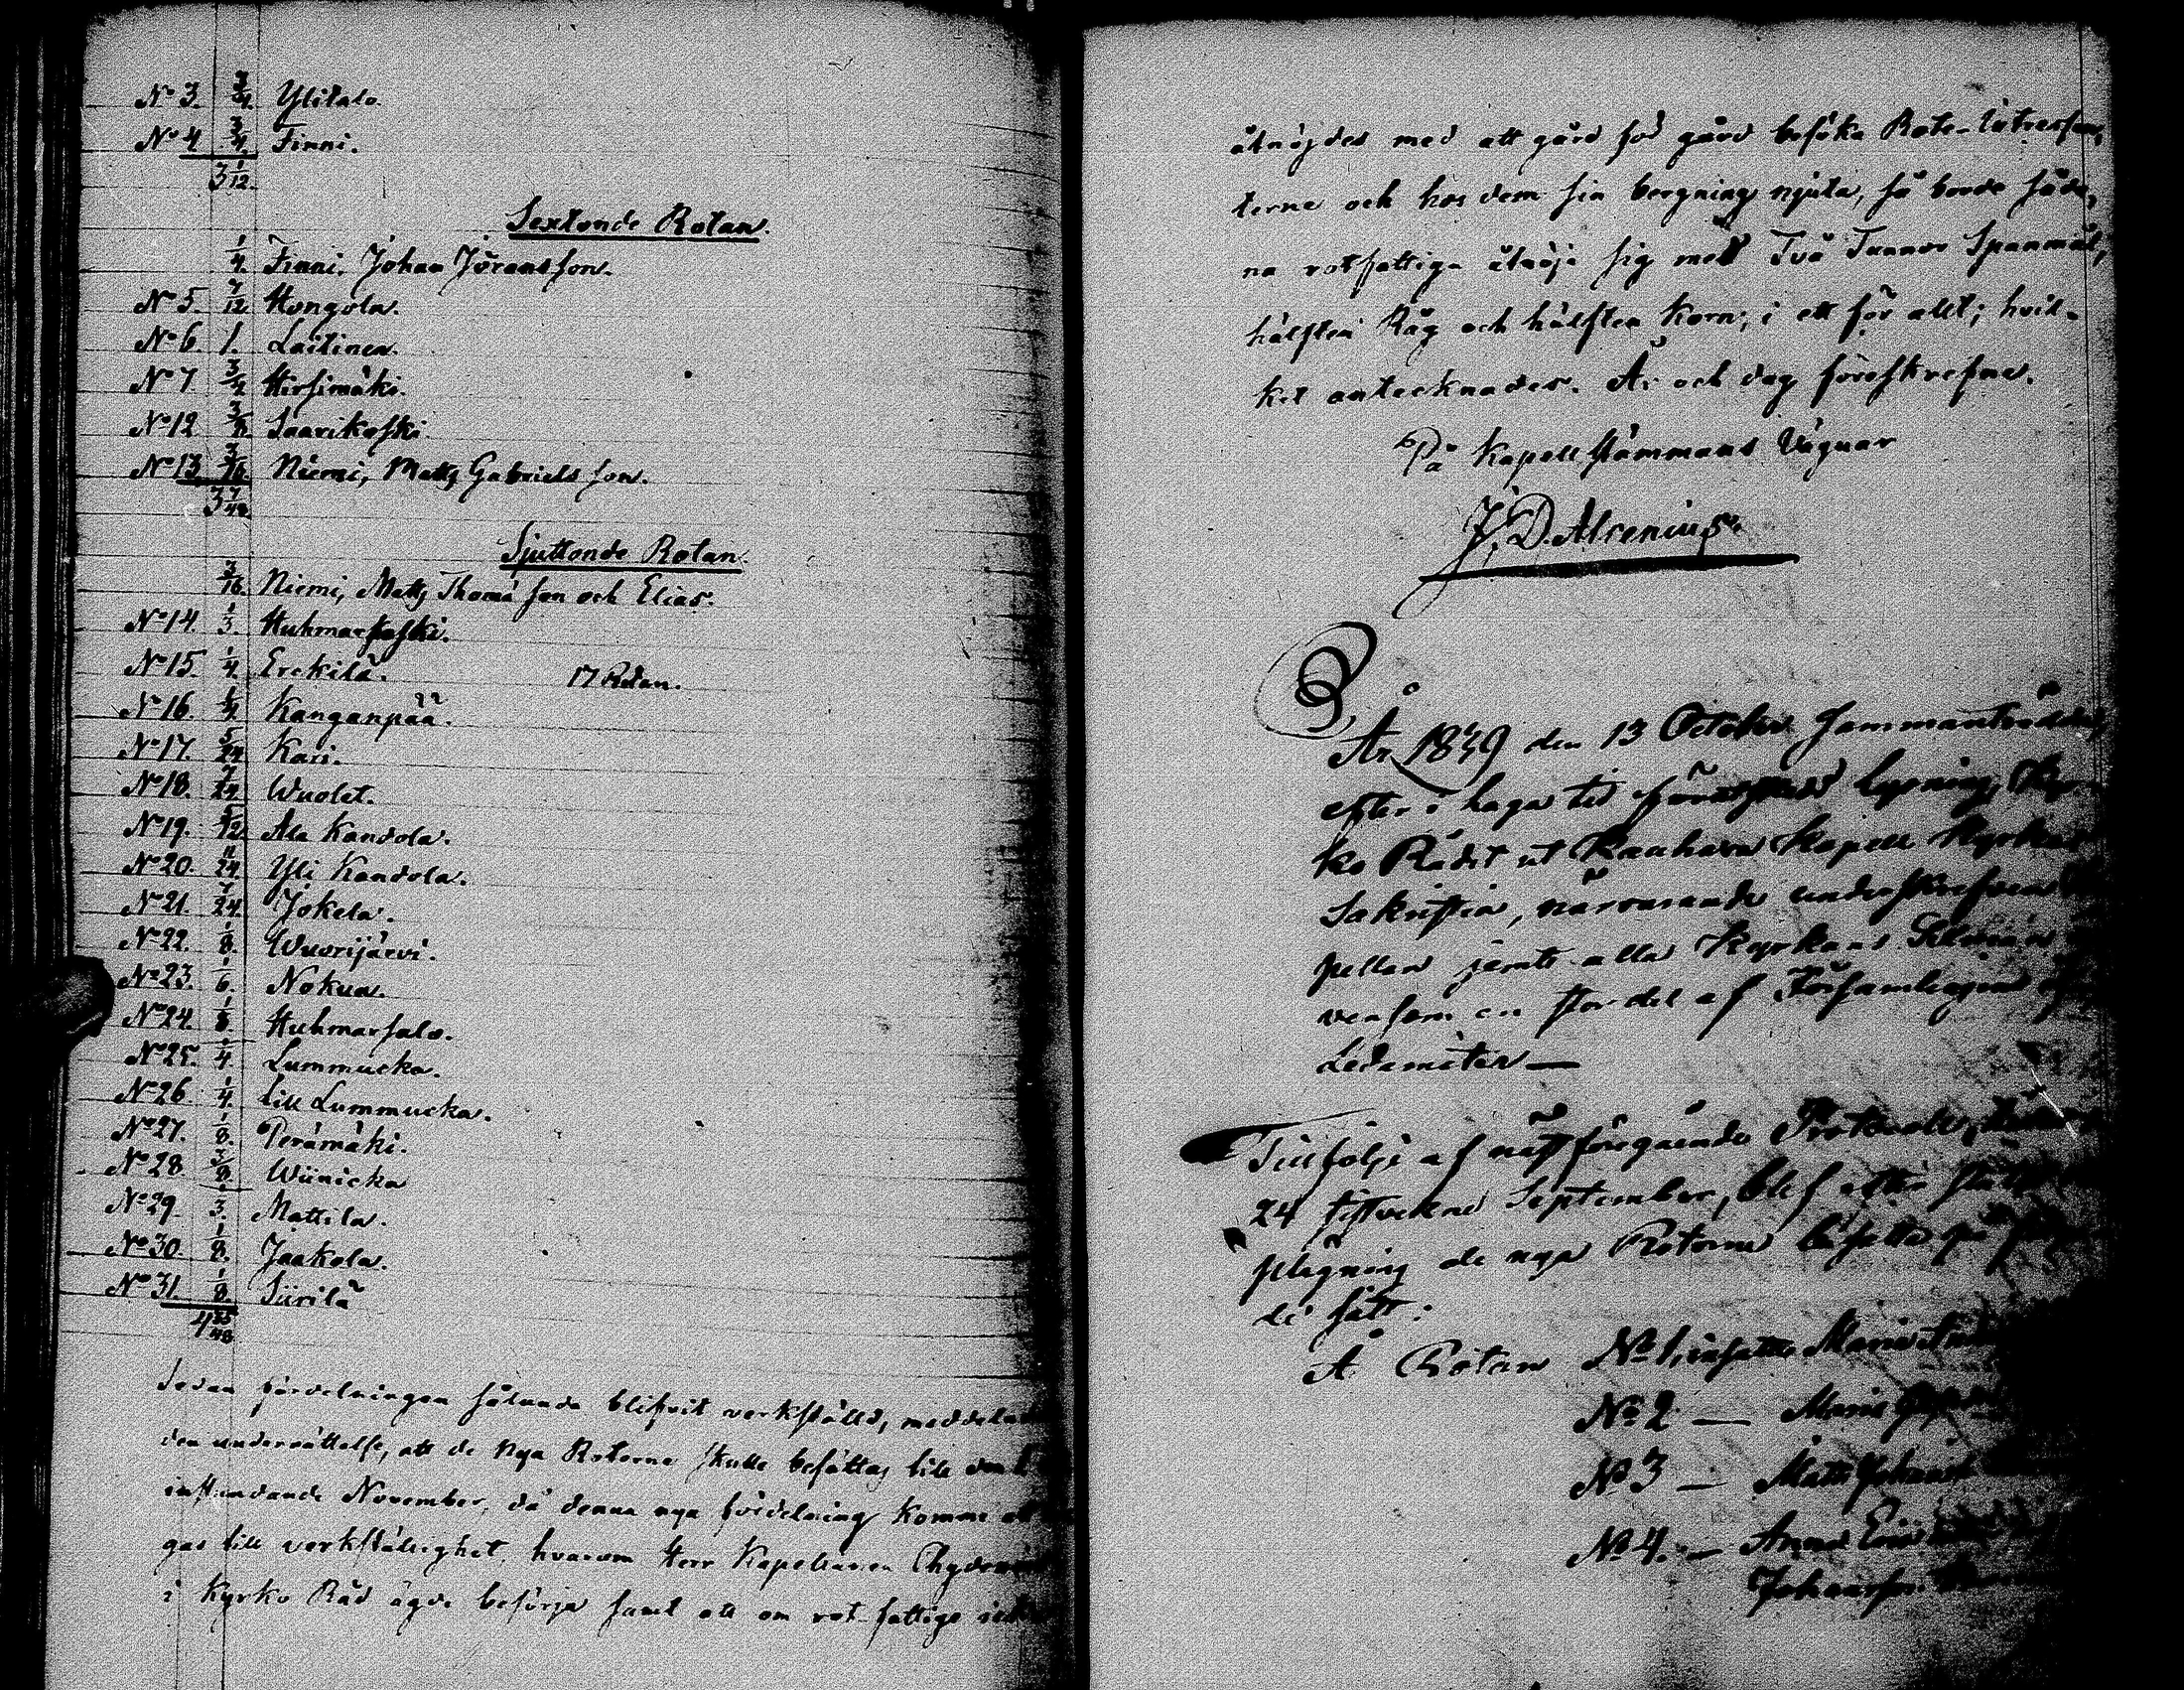 No 3. 3/4. Ylitalo.
No 4 3/4. Finni.
3 1/12.
Sextonde Rotan.
1/4. Finni, Johan Jöransson.
No 5. 7/12. Hongola.
No 6. 1. Laitinen.
No 7 Hirsimäki.
No 12 3/8. Saarikoski.
No 13 3/16. Niemi, Matts Gabriels son.
3 7/48.
Sjuttonde Rotan.
3/16. Niemi, Matts Thomæ son och Elias.
No 14. 1/3. Huhmarkoski.
No 15. 1/4. Erckilä. 17 Rotan.
No 16. 1/4. Kanganpää.
No 17. 5/24 Kari.
No 18. 7/24. Wuolet.
No 19. 5/12. Ala Kandola.
No 20. 11/24. Yli Kandola.
No 21. 7/24. Jokela.
No 22. 1/8. Wuorijärvi.
No 23. 1/6. Nokua.
No 24. 1/8. Huhmarsalo.
No 25. 1/4. Lummucka.
No 26 1/4. Lill Lummucka.
No 27. 1/8. Perämäki.
No 28. 3/8. Wiinicka
No 29. 1/3. Mattila.
No 30. 1/8. Jaakola.
No 31. 1/8. Siirilä
4 35/48.
Sedan fördelningen sålunda blifvit verkställd, meddelades
den underrättelse, att de nya Rotorne skulle besättas till den 1
instundande November, då denna nya fördelning komme att
gas till verkställighet, hvarom Herr Kapellanen Chydenius
i Kyrko Råd ägde besörja samt att om rot-fattige icke
åtnöjdes med att gård från gård besöka Rote-Intressen-
terne och hos dem sin bergning njuta, så borde såda-
na rotfattiga åtnöja sig med Två Tunnor Spanmål,
hälften Råg och hälften Korn, i ett för allt; hvil-
ket antecknades. År och dag föreskrefne.
På Kapellstämmans Vägnar
J. D. Alcenius.
År 1839 den 13 October sammanträdde,
efter i laga tid lysning, Kyr-
ko Rådet ut Kauhava Kapell Kyrkas
Sakristia, närvarande underskrefven
pellan jemte alla Kyrkans Sexmän
vensom en stor del af Församlingens
Ledamöter —
Till följe af nästföregående Protocoll,
24 sistvekne September, blef efter
plägning de nya Rotorne besatte på följan
de sätt:
Å Rotan No 1, insattes Maria
No 2 — Maria
No 3 — Matts Johansson
No 4. — Anna
Johansson